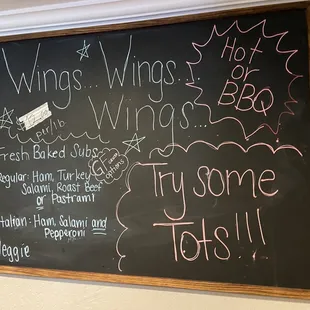 Wings... Wings...
Wings...
Hot
or
BBQ
per/lb
Fresh Baked Subs
Regular: Ham, Turkey
Salami, Roast Beef
or Pastrami
options
Italian: Ham, Salami and
Pepperoni
Veggie
Try some
Tots!!!